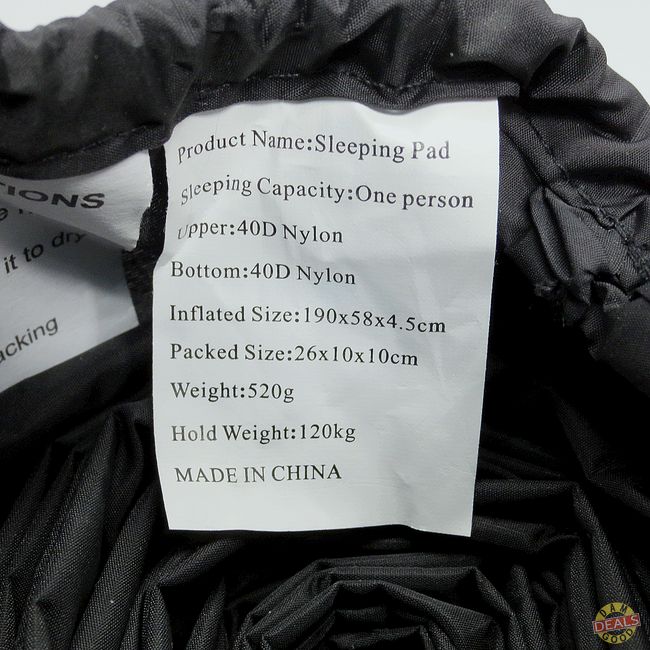 Product Name:Sleeping Pad
Sleeping Capacity:One person
Upper:40D Nylon
Bottom:40D Nylon
Inflated Size:190x58x4.5cm
Packed Size:26x10x10cm
Weight:520g
Hold Weight:120kg
MADE IN CHINA
TIONS
it to dry
acking
DAMN
GOOD
DEALS